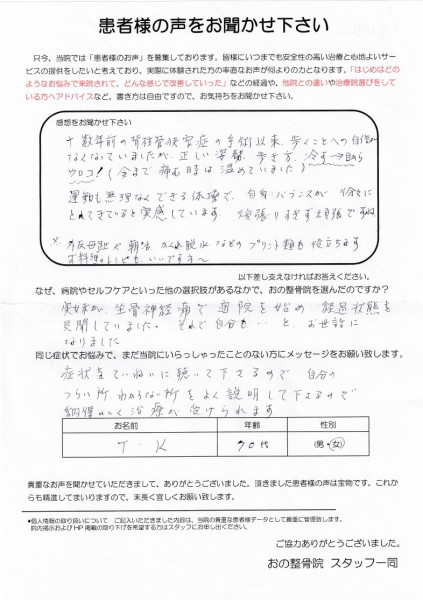 患者様の声をお聞かせ下さい
只今、当院では「患者様のお声」を募集しております。皆様にいつまでも安全性の高い治療と心地よいサー
ビスの提供をしたいと考えており、実際に体験された方の率直なお声が何よりの力となります。「はじめはどの
ようなお悩みで来院されて、どんな感じで改善していった」などの経過や、他院との違いや治療院選びをして
いる方へアドバイスなど、書き方は自由ですので、お気持ちをお聞かせ下さい。
感想をお聞かせ下さい
十数年前の脊柱管狭窄症の手術以来、歩くことへの自信が
なくなっていましたが、正しい姿勢、歩き方、冷す 目から
ウロコ!(今まで痛む時は温めていました)
運動も無理なくできる体操で、自身 バランスが 徐々に
とれてきていると実感しています。頑張りすぎず頑張ですね
※ 外反母趾や 朝活 かくれ脱水 などの プリント類も 役立ちます
お料理のレシピも、いいです
以下差し支えなければお答えください。
なぜ、病院やセルフケアといった他の選択肢があるなかで、おの整骨院を選んだのですか?
実妹が、坐骨神経痛で 通院を始め 経過状態を
見聞していました。それで自分も・・と、お世話に
なりました
同じ症状でお悩みで、まだ当院にいらっしゃったことのない方にメッセージをお願い致します。
症状をていねいに聴いて下さるので 自分の
つらい所 わからない所をよく説明して下さるので
納得のいく治療が受けられます
お名前 年齢 性別
T・K 70代 (男・女)
貴重なお声を聞かせていただきまして、ありがとうございました。頂きました患者様の声は宝物です。これか
らも精進してまいりますので、末長く宜しくお願い致します。
●個人情報の取り扱いについて ご記入いただきました内容は、当院の貴重な患者様データとして厳重に管理致します。
院内掲示およびHP掲載の取り下げを希望する方はスタッフにお申し出ください。
ご協力ありがとうございました。
おの整骨院 スタッフ一同